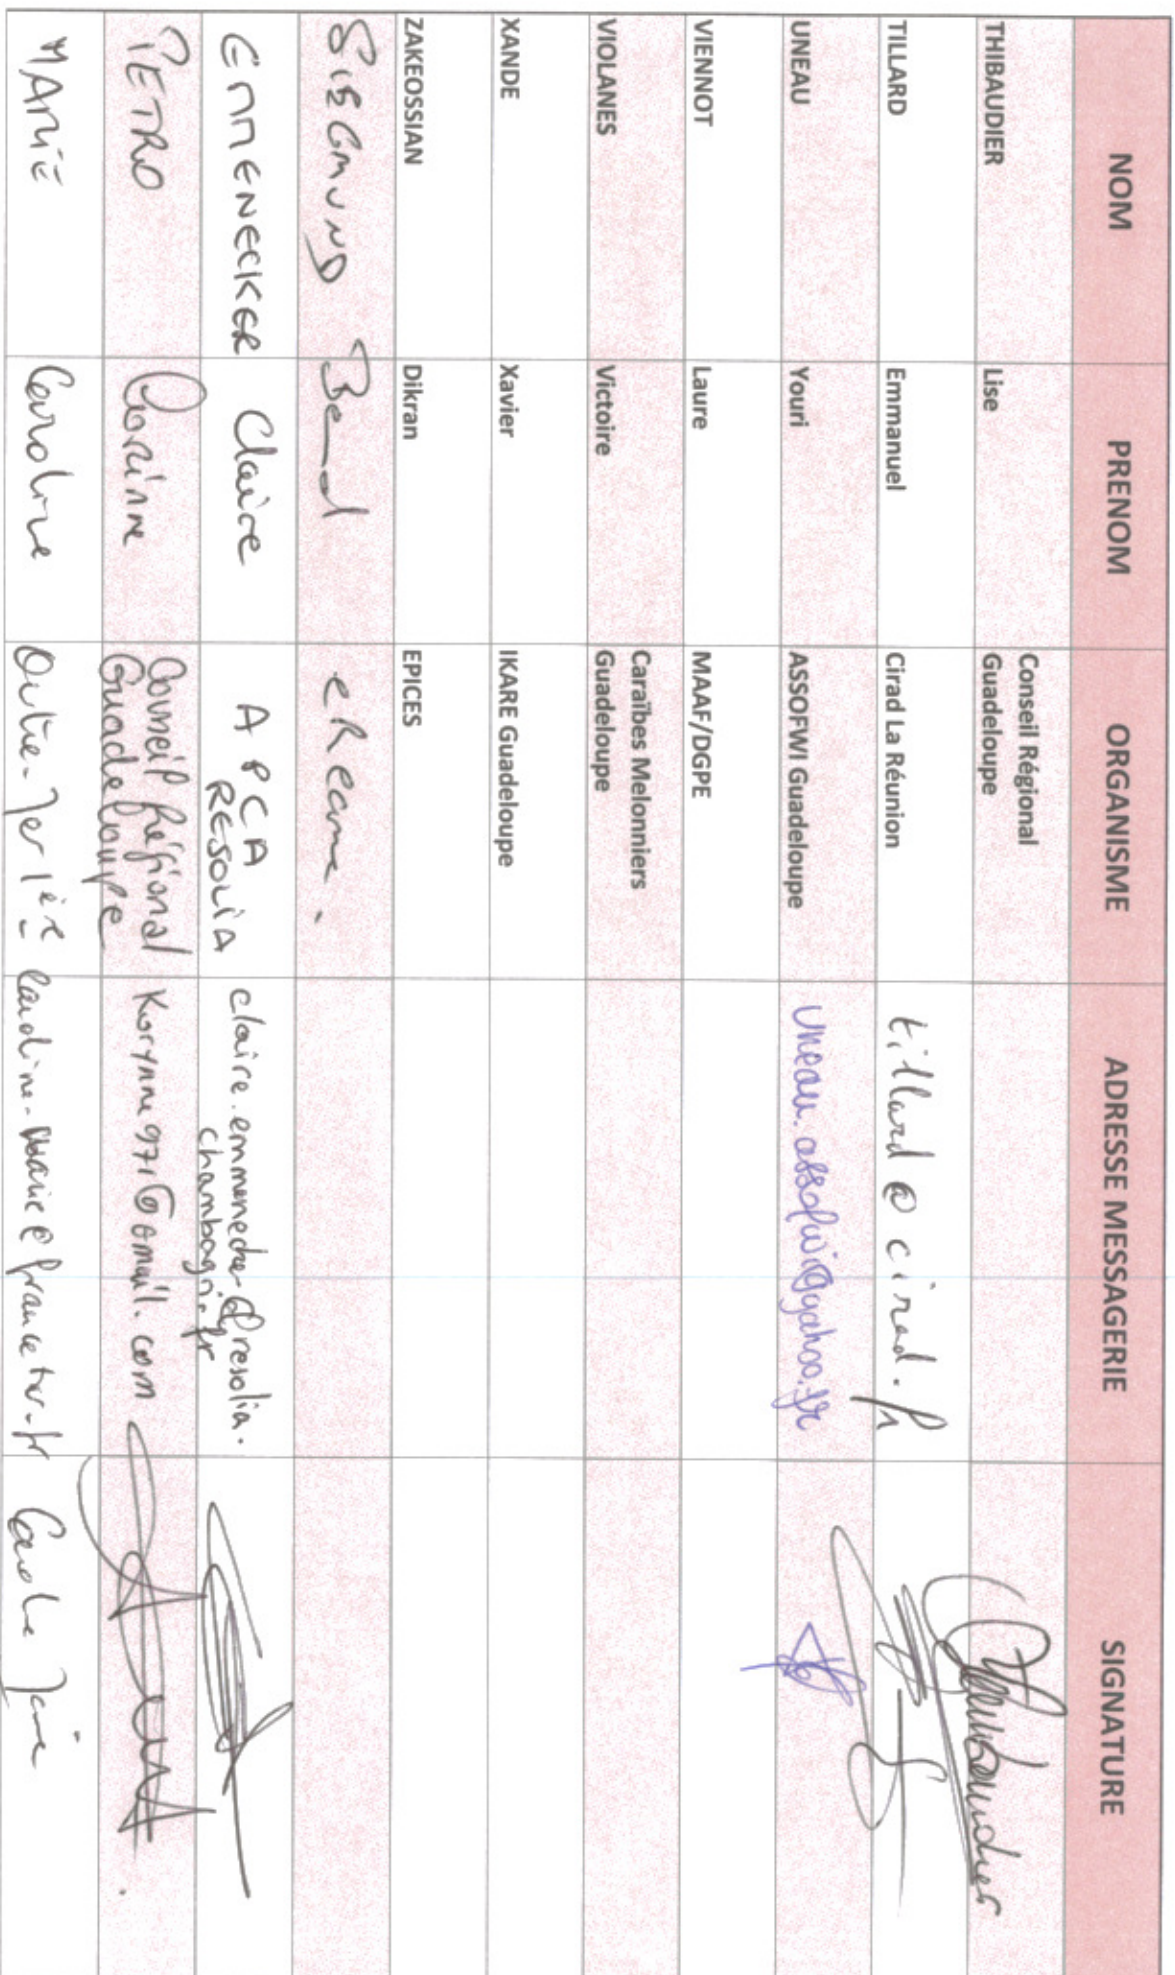 NOM PRENOM ORGANISME ADRESSE MESSAGERIE SIGNATURE
THIBAUDIER Lise Conseil Régional
Guadeloupe
TILLARD Emmanuel Cirad La Réunion tillard @ cirad.fr
UNEAU Youri ASSOFWI Guadeloupe uneau.assofwi@yahoo.fr
VIENNOT Laure MAAF/DGPE
VIOLANES Victoire Caraïbes Melonniers
Guadeloupe
XANDE Xavier IKARE Guadeloupe
ZAKEOSSIAN Dikran EPICES
SIEGMUND
EMMENECKER Claire APCA claire.emmenecker@resolia.
RESOLIA chambagri.fr
PETRO Corinne Conseil Régional Korynne971@gmail.com
Guadeloupe
MARIE Caroline Outre-Mer 1ère caroline-marie@francetv.fr